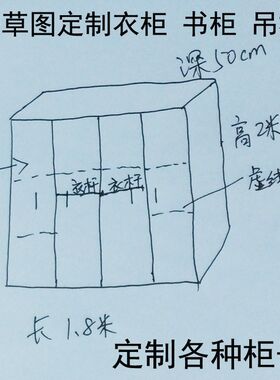 草图定制衣柜 书柜 吊
深50cm
高2米
衣杆 衣杆
虚线
长 1.8米
定制各种柜